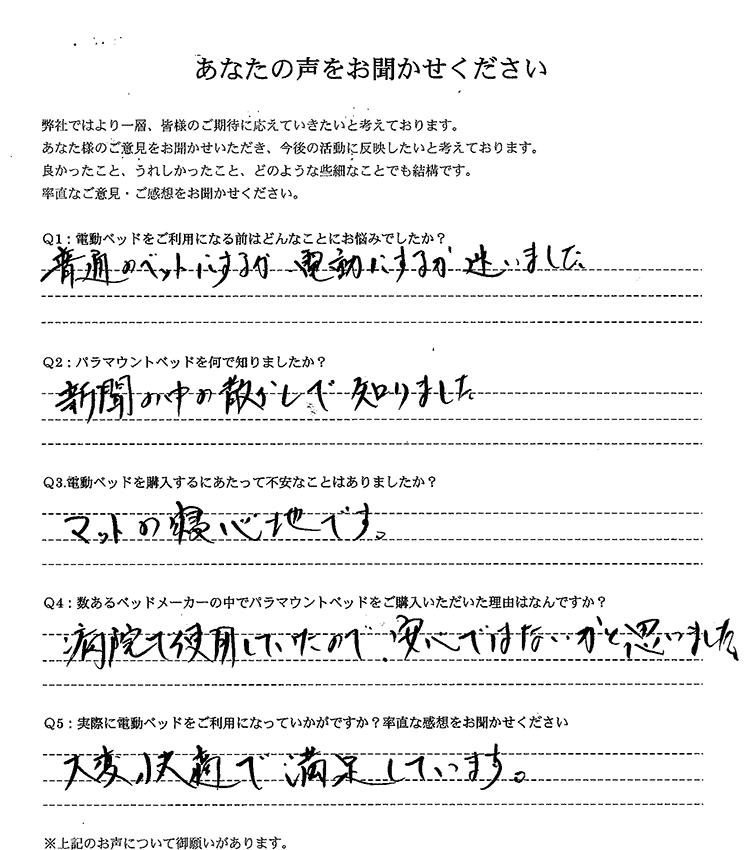 あなたの声をお聞かせください
弊社ではより一層、皆様のご期待に応えていきたいと考えております。
あなた様のご意見をお聞かせいただき、今後の活動に反映したいと考えております。
良かったこと、うれしかったこと、どのような些細なことでも結構です。
率直なご意見・ご感想をお聞かせください。
Q1：電動ベッドをご利用になる前はどんなことにお悩みでしたか？
普通のベットにするか 電動にするか 迷いました
Q2：パラマウントベッドを何で知りましたか？
新聞の中の散らしで 知りました
Q3.電動ベッドを購入するにあたって不安なことはありましたか？
マットの寝心地です。
Q4：数あるベッドメーカーの中でパラマウントベッドをご購入いただいた理由はなんですか？
病院で使用していたので、安心ではないかと思いました
Q5：実際に電動ベッドをご利用になっていかがですか？率直な感想をお聞かせください
大変、快適で満足しています。
※上記のお声について御願いがあります。